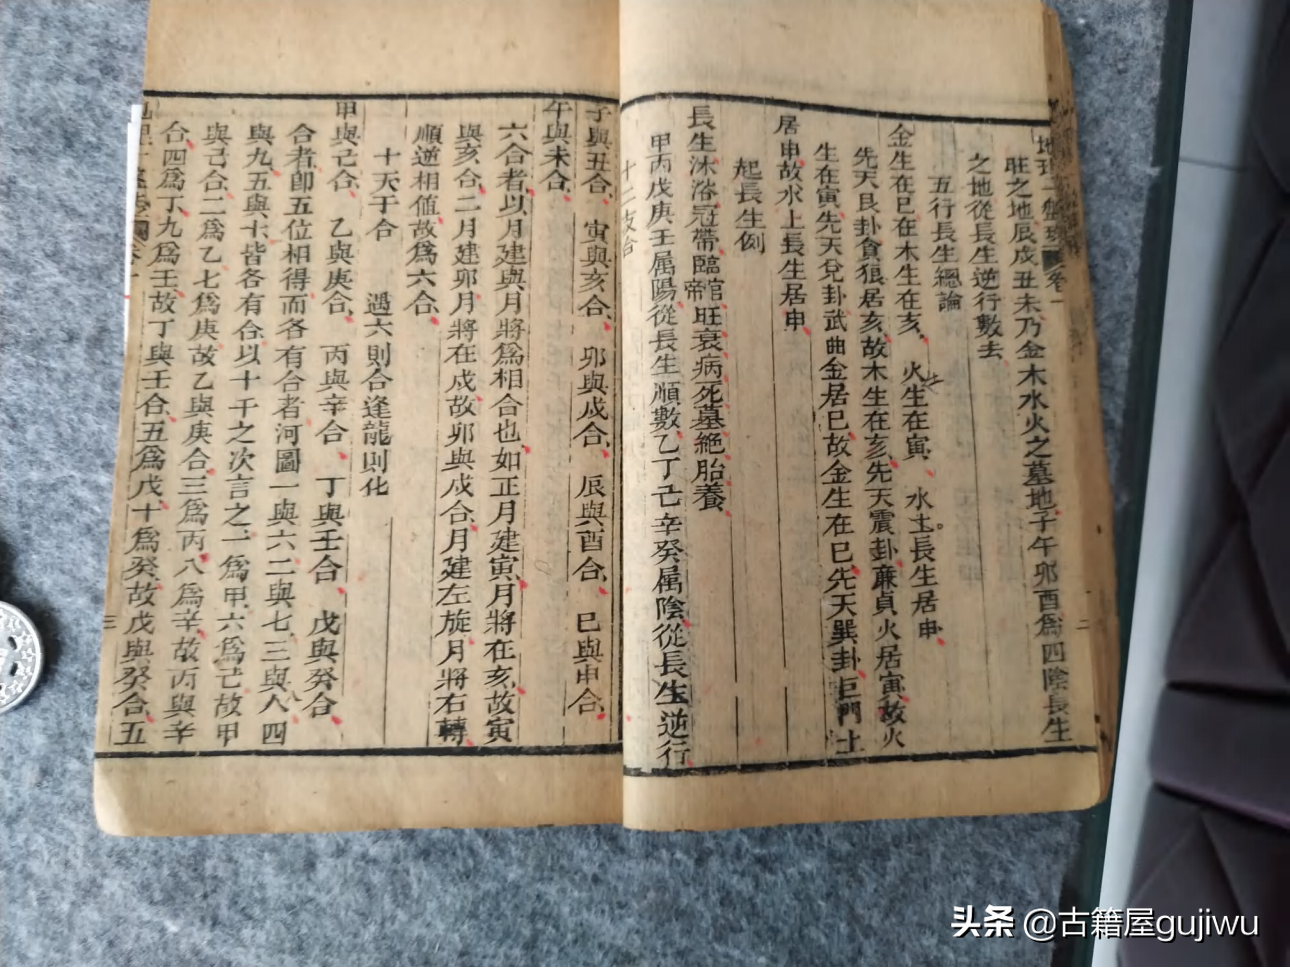 地理一盤珠 卷一 二
旺之地辰戌丑未乃金木水火之墓地子午卯酉為四陰長生
之地從長生逆行數去
五行長生總論
金生在巳在木生在亥 火生在寅 水土長生居申
先天艮卦貪狼居亥故木生在亥先天震卦廉貞火居寅故火
生在寅先天兌卦武曲金居巳故金生在巳先天巽卦巨門土
居申故水土長生居申
起長生例
長生沐浴冠帶臨官帝旺衰病死墓絕胎養
甲丙戊庚壬属陽從長生順數乙丁己辛癸属陰從長生逆行
十二支合
子與丑合 寅與亥合 卯與戌合 辰與酉合 巳與申合
午與未合
六合者以月建與月將為相合也如正月建寅月將在亥故寅
與亥合二月建卯月將在戌故卯與戌合月建左旋月將右轉
順逆相值故為六合
十天干合 遇六則合逢龍則化
甲與己合 乙與庚合 丙與辛合 丁與壬合 戊與癸合
合者卽五位相得而各有合者河圖一與六二與七三與八四
與九五與十皆各有合以十干之次言之一為甲六為己故甲
與己合二為乙七為庚故乙與庚合三為丙八為辛故丙與辛
合四為丁九為壬故丁與壬合五為戊十為癸故戊與癸合五
三
头条 @古籍屋gujiwu